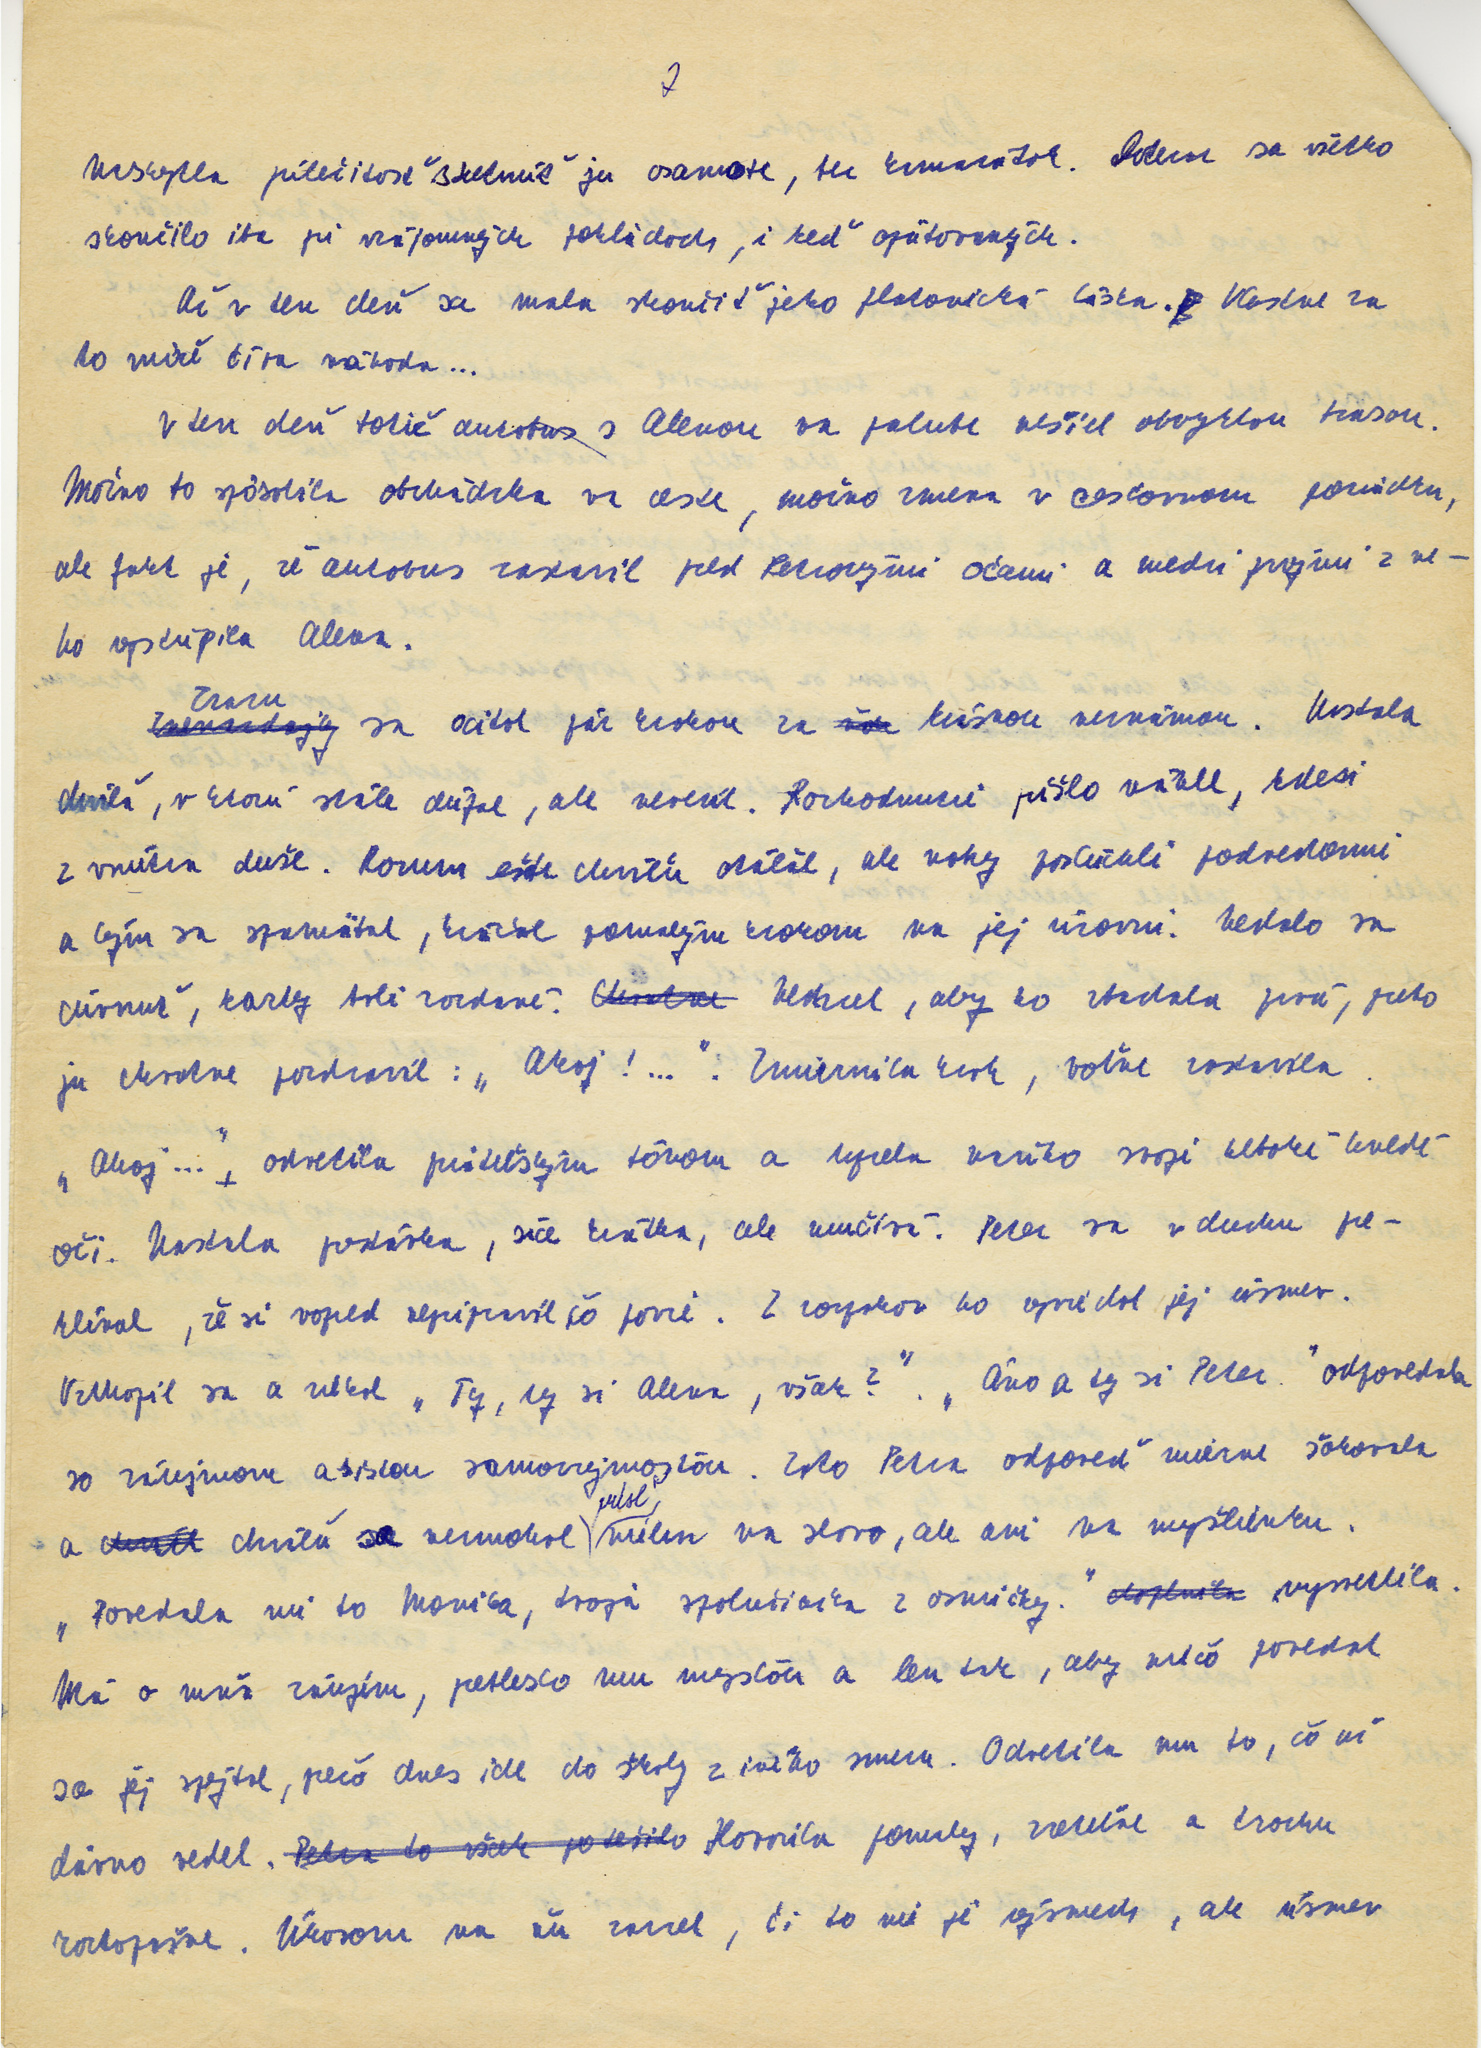 7
naskytla príležitosť stretnúť ju osamote, bez kamarátok. Potom sa všetko
skončilo iba pri vzájomných pohľadoch, i keď opätovaných.
Až v ten deň sa mala skončiť jeho platonická láska. Vlastne za
to môže číra náhoda...
V ten deň totiž autobus s Alenou na palube nešiel obvyklou trasou.
Možno to spôsobila obchádzka na ceste, možno zmena v cestovnom poriadku,
ale fakt je, že autobus zastavil pred Petrovými očami a medzi prvými z ne-
ho vystúpila Alena.
Zrazu
sa ocitol pár krokov za krásnou neznámou. Nastala
chvíľa, v ktorú stále dúfal, ale neveril. Rozhodnutie prišlo náhle, kdesi
z vnútra duše. Rozum ešte chvíľu otáľal, ale nohy poslúchli podvedomie
a kým sa spamätal, kráčal pomalým krokom na jej úrovni. Nedalo sa
cúvnuť, karty boli rozdané. Chvatne Nechcel, aby ho zbadala prvá, preto
ju chvatne pozdravil: „Ahoj!...“. Zmiernila krok, voľne zastavila
„Ahoj...“, odvetila priateľským tónom a uprela naňho svoje hlboké hnedé
oči. Nastala prestávka, síce krátka, ale mučivá. Peter sa v duchu pre-
klínal, že si vopred nepripravil čo povie. Z rozpakov ho vyviedol jej úsmev.
Vzchopil sa a riekol „Ty, ty si Alena, však?“. „Áno a ty si Peter.“ odpovedala
so záujmom a istou samozrejmosťou. Toto Petra odpoveď mierne šokovala
prísť
a chvíľu chvíľu sa nemohol nielen na slovo, ale ani na myšlienku.
„Povedala mi to Monika, tvoja spolužiačka z osmičky.“ doplnila vysvetlila.
Má o mňa záujem, preblesklo mu mysľou a len tak, aby niečo povedal
sa jej spýtal, prečo dnes ide do školy z iného smeru. Odvetila mu to, čo už
dávno vedel. Petra to však potešilo Hovorila pomaly, zreteľne a trochu
roztopašne. Úkosom na ňu zazrel, či to nie je výsmech, ale úsmev